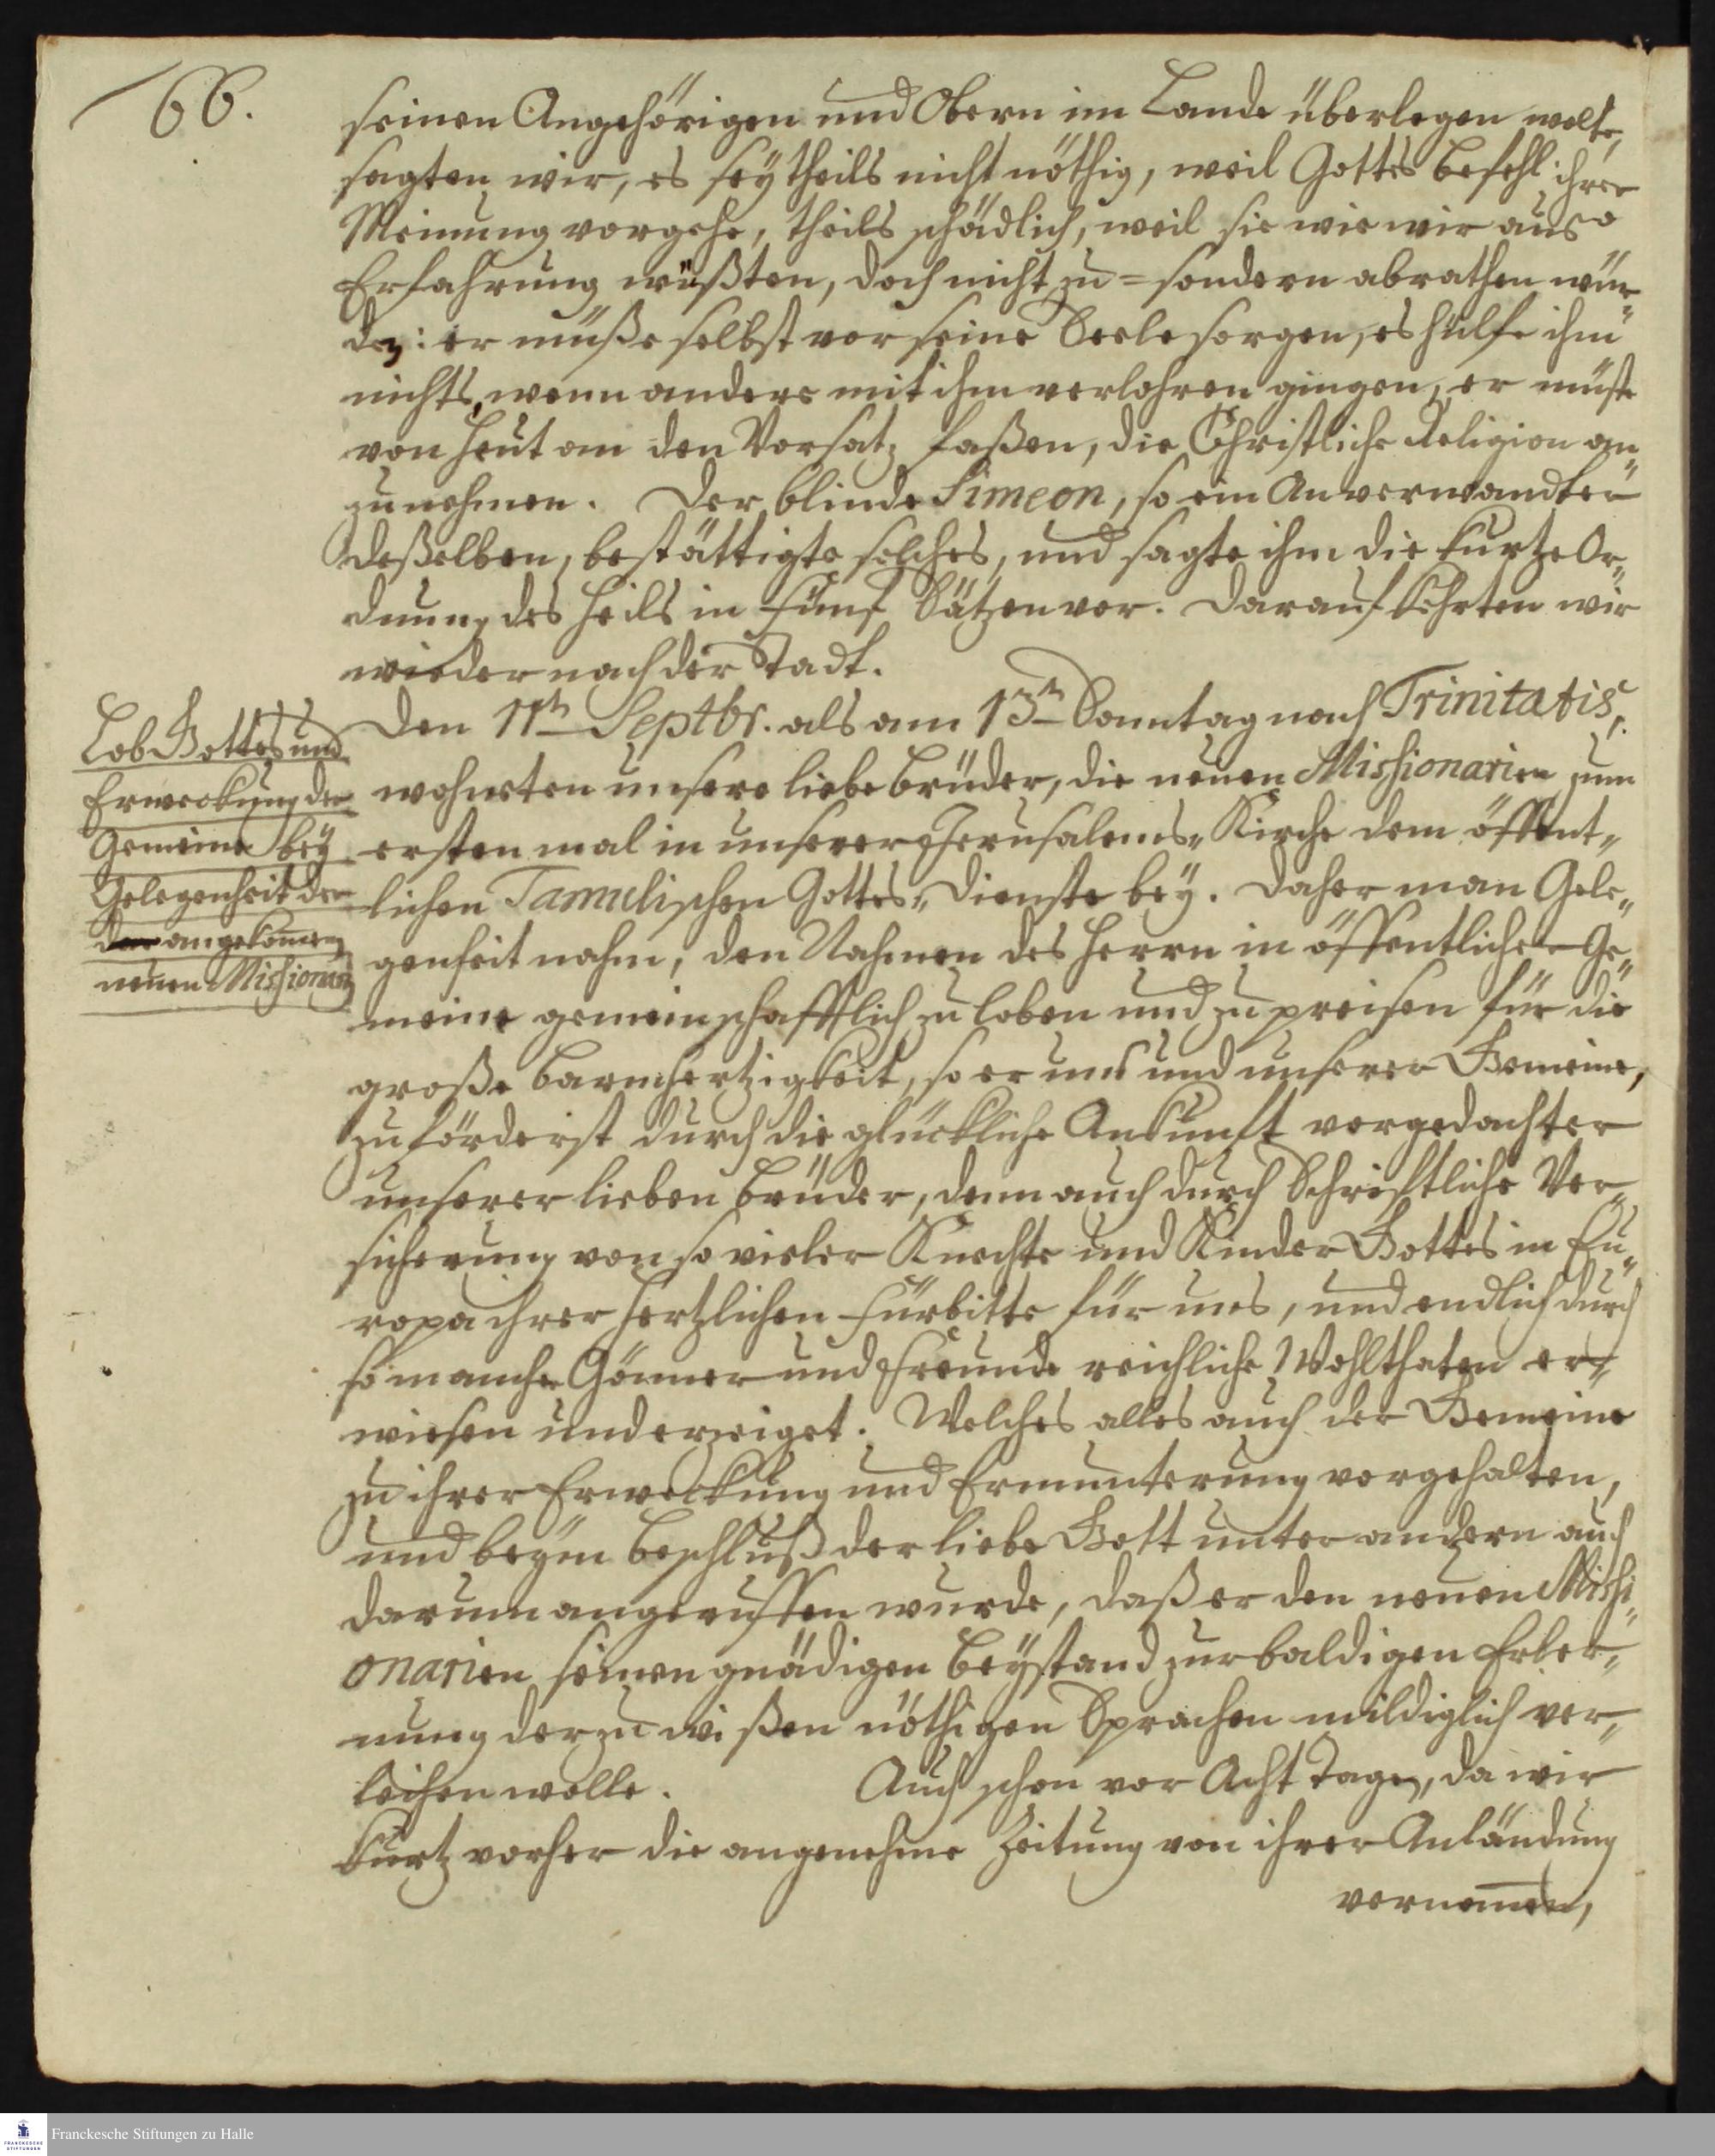 66.
seinen Angehörigen und Obern im Lande überlegen wolte,
sagten wir, es sey theils nicht nöthig, weil Gottes Befehl ihrer
Meinung vorgehe, theils schädlich, weil sie wie wir aus
Erfahrung wüßten, doch nicht zu = sondern abrathen wür„
den: er müße selbst vor seine Seele sorgen, es hülfe ihm
nichts, wenn andere mit ihm verlohren gingen, er müste
von heut an den Vorsatz faßen, die Christliche Religion an„
zunehmen. Der blinde Simeon, so ein Anverwandter
deßelben, bestättigte solches, und sagte ihm die kurtze Or„
dnung des Heils in fünf Sätzen vor. Darauf kehrten wir
wieder nach der Stadt.
Lob Gottes und
Erweckung der
Gemeine bey
Gelegenheit der
der angekom̄en
neuen Missionar.
Den 11ten Septbr. als am 13ten Sonntag nach Trinitatis,
wohnten unsere liebe Brüder, die neuen Missionarien zum
ersten mal in unserer Jerusalems„Kirche dem öffent„
lichen Tamulischen Gottes„Dienste bey. Daher man Gele„
genheit nahm, den Nahmen des Herrn in öffentlicher Ge„
meine gemeinschafftlich zu loben und zu preisen für die
große Barmhertzigkeit, so er uns und unserer Gemeine,
zuförderst durch die glückliche Ankunft vorgedachter
unserer lieben Brüder, denn auch durch Schriftliche Ver„
sicherung von so vieler Knechte und Kinder Gottes in Eu„
ropa ihrer hertzlichen Fürbitte für uns, und endlich durch
so mancher Gönner und Freunde reichliche Wohlthaten er„
wiesen und erzeiget. Welches alles auch der Gemeine
zu ihrer Erweckung und Ermunterung vorgehalten,
und beym Beschluß der liebe Gott unter andern auch
darum angeruffen wurde, daß er den neuen Missi„
onarien seinen gnädigen Beystand zur baldigen Erler„
nung der zu wißen nöthigen Sprachen mildiglich ver„
leihen wolle. Auch schon vor Acht Tagen, da wir
kurtz vorher die angenehme Zeitung von ihrer Anländung
vernom̄en,
Franckesche Stiftungen zu Halle
FRANCKESCHE
STIFTUNGEN